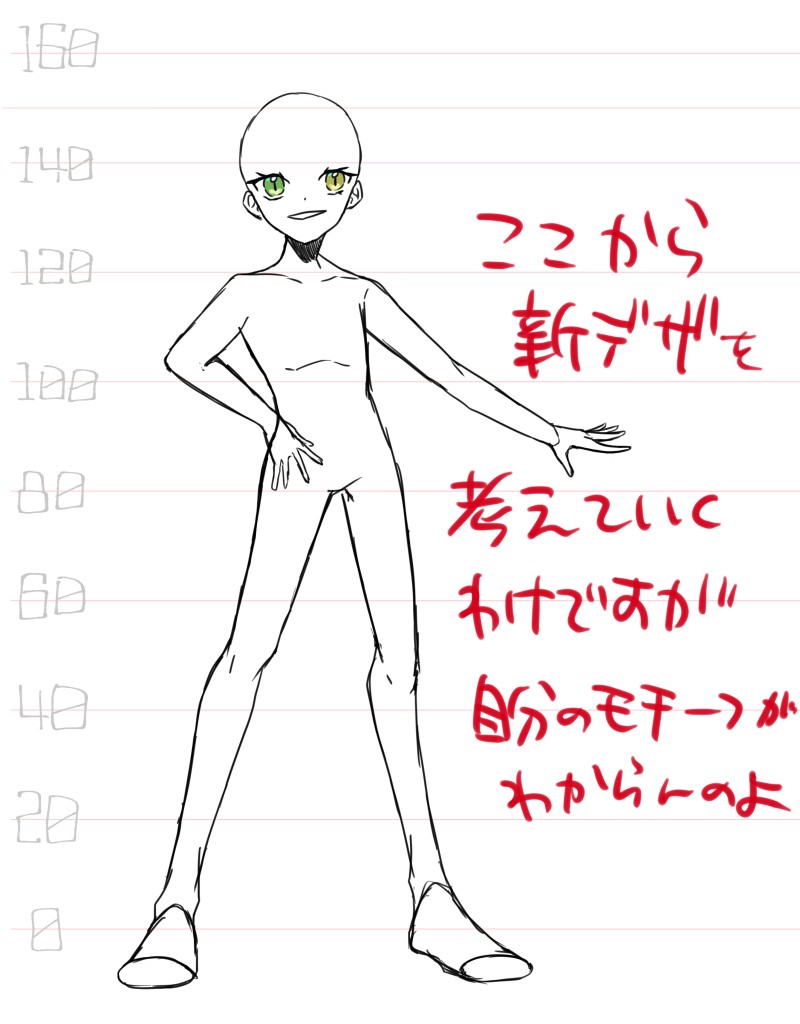 160
140
120
100
80
60
40
20
0
ここから
新デザを
考えていく
わけですが
自分のモチーフが
わからんのよ